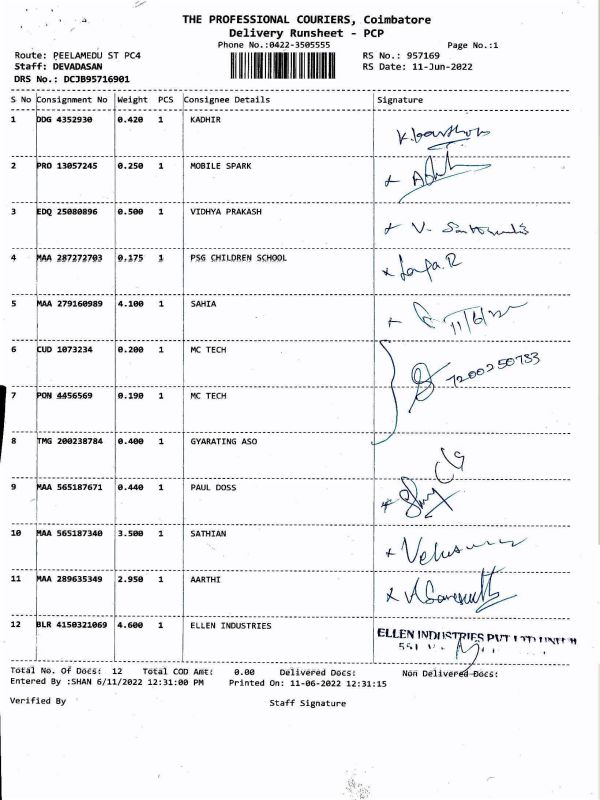 THE PROFESSIONAL COURIERS, Coimbatore
Delivery Runsheet - PCP
Phone No.:0422-3505555
Page No.:1
Route: PEELAMEDU ST PC4
RS No.: 957169
Staff: DEVADASAN
RS Date: 11-Jun-2022
DRS No.: DCJB95716901
S No Consignment No Weight PCS Consignee Details Signature
1 DDG 4352930 0.420 1 KADHIR
2 PRO 13057245 0.250 1 MOBILE SPARK
3 EDQ 25080896 0.500 1 VIDHYA PRAKASH
4 MAA 287272703 0.175 1 PSG CHILDREN SCHOOL
5 MAA 279160989 4.100 1 SAHIA 11/6/22
6 CUD 1073234 0.200 1 MC TECH 7200350733
7 PON 4456569 0.190 1 MC TECH
8 TMG 200238784 0.400 1 GYARATING ASO
9 MAA 565187671 0.440 1 PAUL DOSS
10 MAA 565187340 3.500 1 SATHIAN
11 MAA 289635349 2.950 1 AARTHI
12 BLR 4150321069 4.600 1 ELLEN INDUSTRIES ELLEN INDUSTRIES PVT LTD
Total No. Of Docs: 12 Total COD Amt: 0.00 Delivered Docs: Non Delivered Docs:
Entered By :SHAN 6/11/2022 12:31:00 PM Printed On: 11-06-2022 12:31:15
Verified By Staff Signature